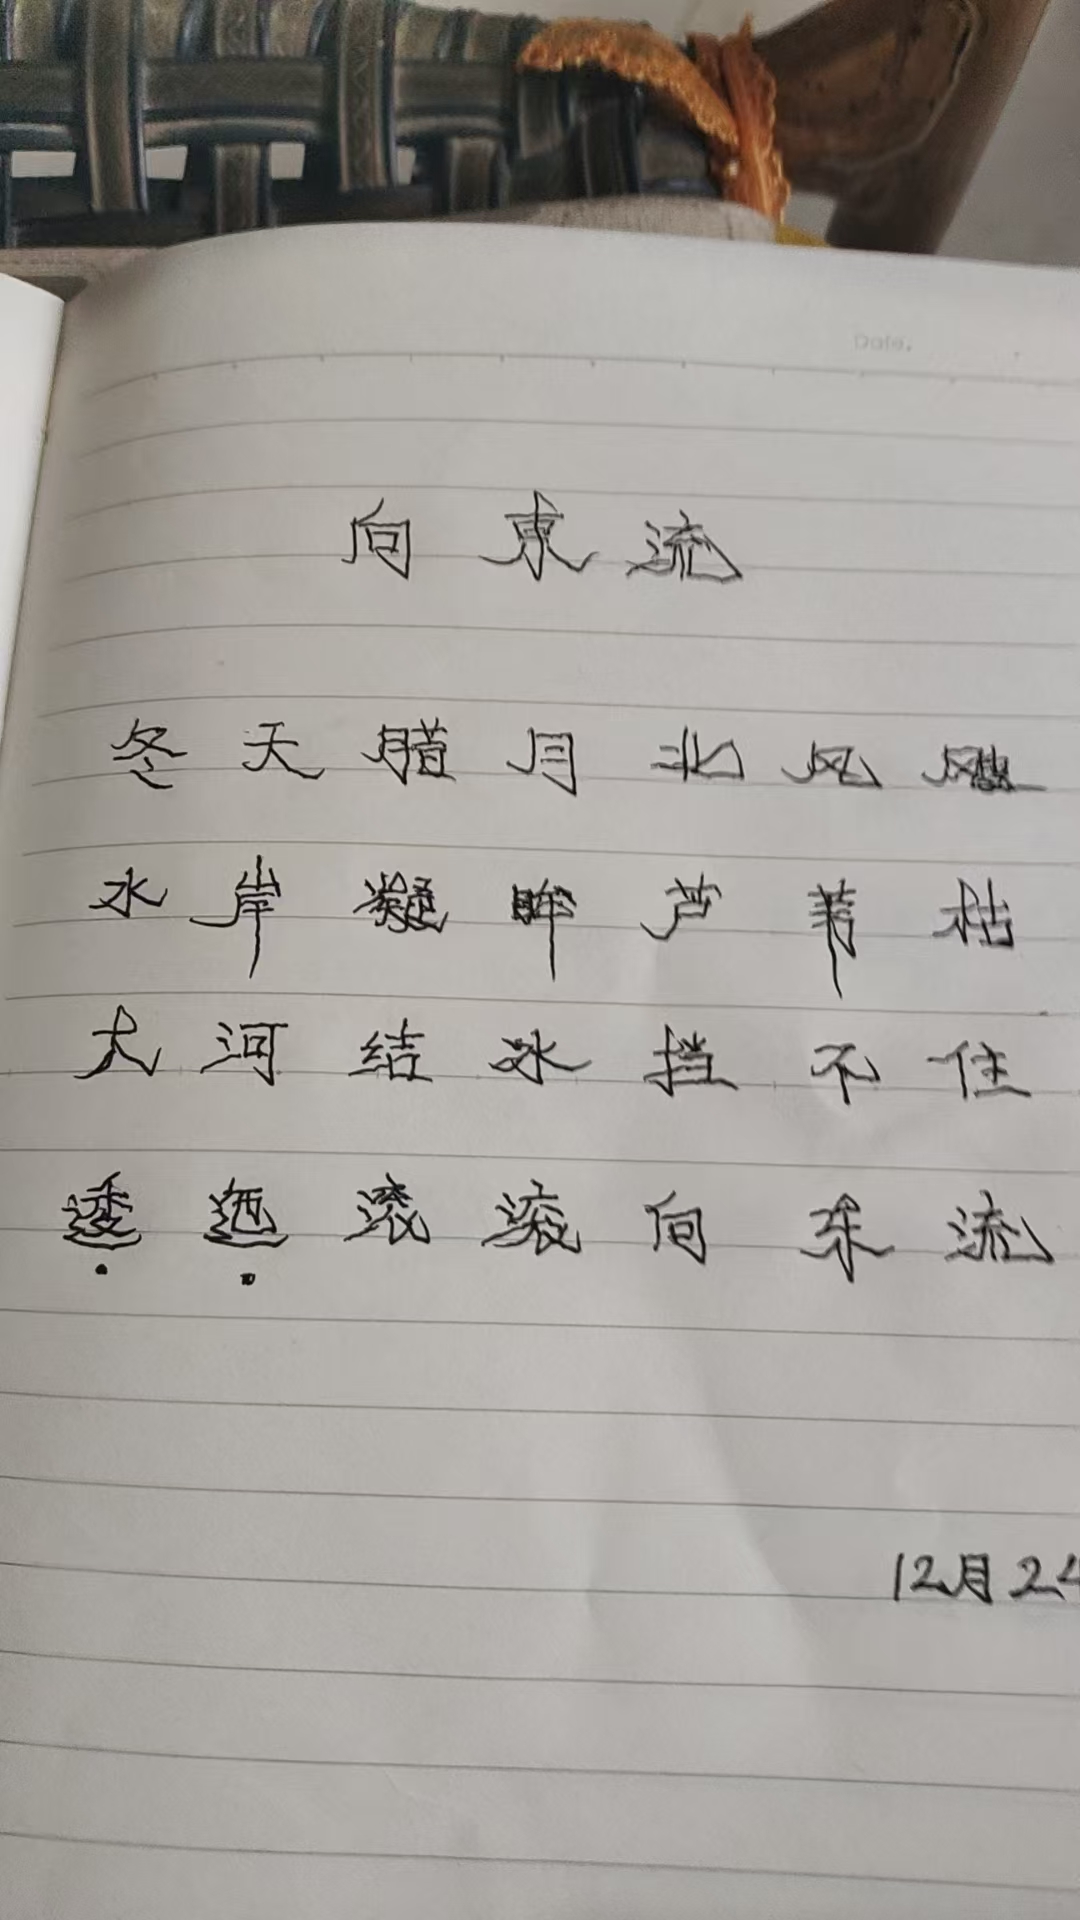 Date.
向東流
冬天腊月北风飕
水岸凝眸芦苇枯
大河结冰挡不住
逶迤滚滚向东流
12月24